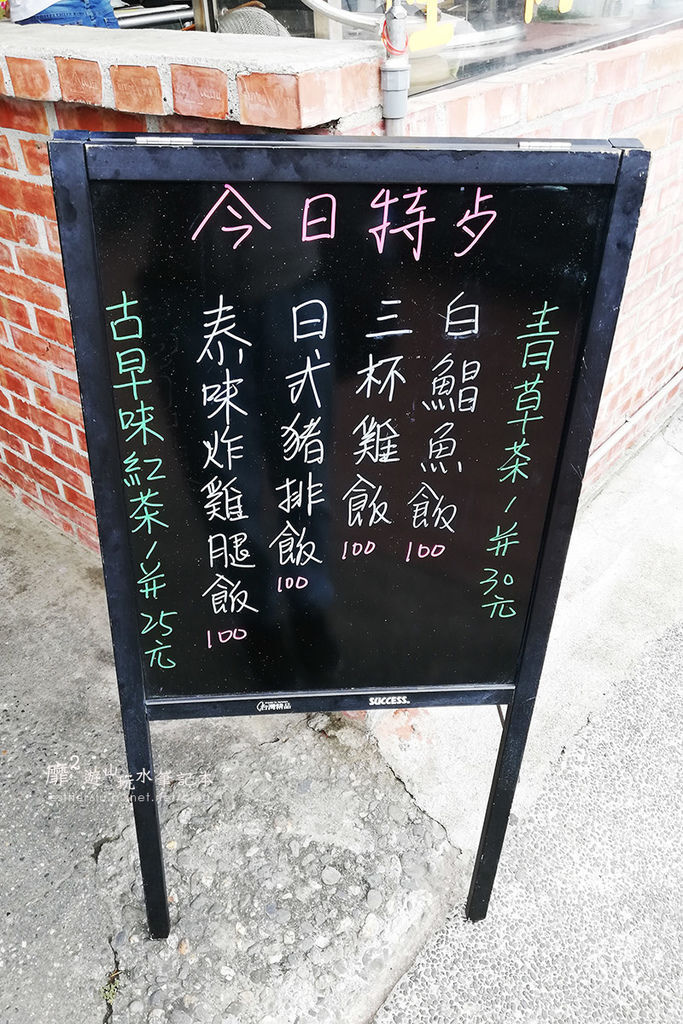 今日特步
青草茶/并30元
白鯧魚飯
100
三杯雞飯
100
日式豬排飯
100
泰味炸雞腿飯
100
古早味紅茶/并25元
SUCCESS
摩2遊山玩水筆記本